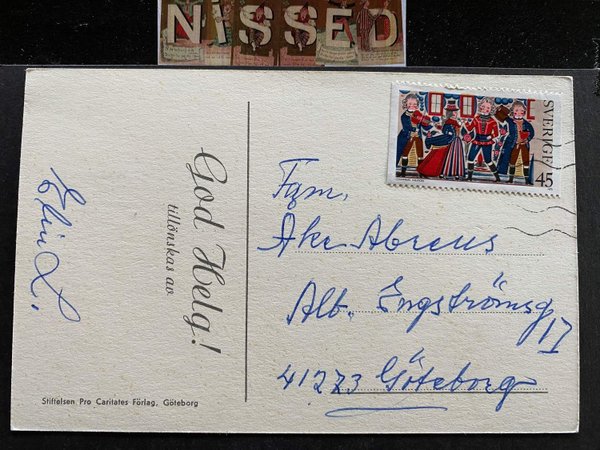 NISSED
SVERIGE
45
God Helg!
tillönskas av
Elin L.
Fam.
Åke Abreus
Alb. Engströmsg
17
41273 Göteborg
Stiftelsen Pro Caritates Förlag, Göteborg